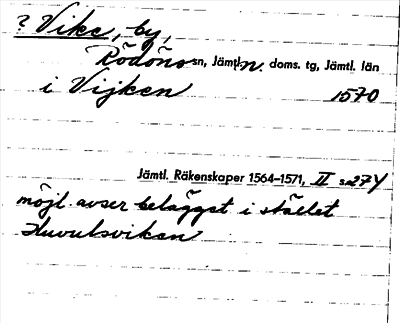 ? Vike, by,
Rödöns sn, Jämtl. n. doms. tg, Jämtl. län
i Vijken 1570
Jämtl. Räkenskaper 1564-1571, II s. 274
möjl. avser belägget i stället
Huvulsviken